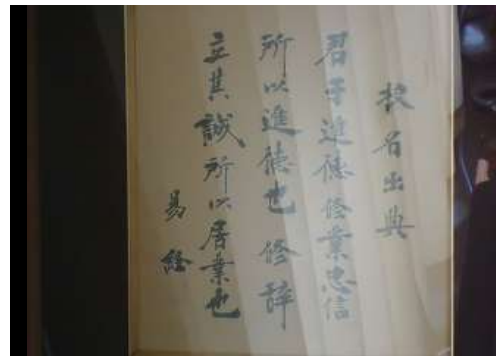 校名出典
君子進德修業忠信
所以進德也修辞
立其誠所以居業也
易経